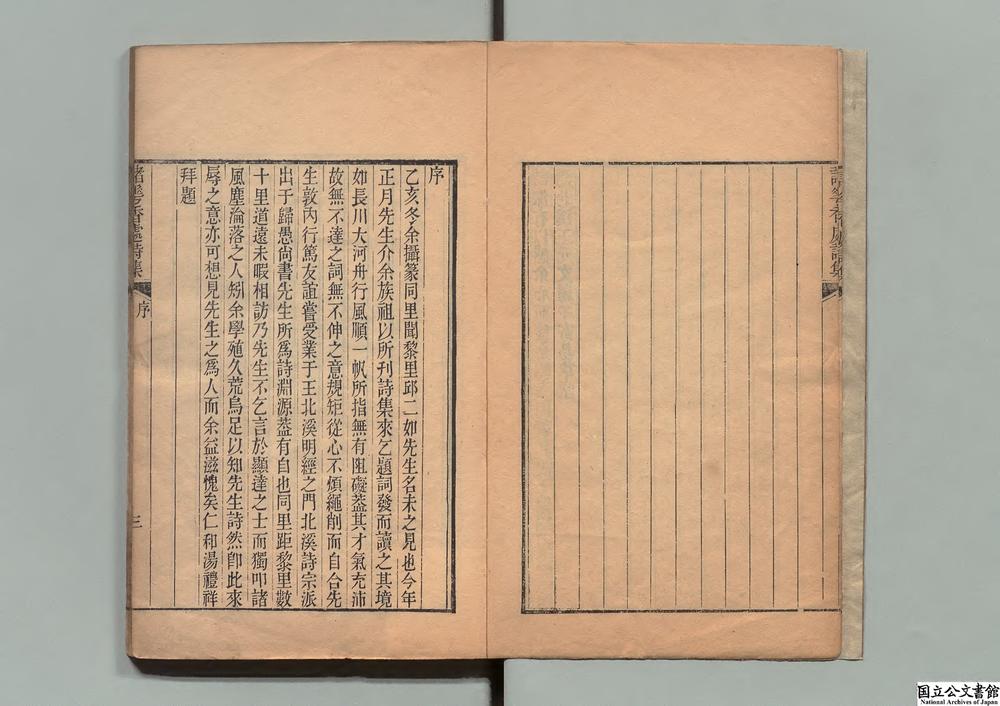 序
乙亥冬余攝篆同里聞黎里邱二如先生名未之見也今年
正月先生介余族祖以所刊詩集來乞題詞發而讀之其境
如長川大河舟行風順一帆所指無有阻礙葢其才氣充沛
故無不達之詞無不伸之意規矩從心不煩繩削而自合先
生敦內行篤友誼嘗受業于王北溪明經之門北溪詩宗派
出于歸愚尚書先生所爲詩淵源葢有自也同里距黎里數
十里道遠未暇相訪乃先生不乞言於顯達之士而獨叩諸
風塵淪落之人矧余學殖久荒烏足以知先生詩然卽此來
辱之意亦可想見先生之爲人而余益滋愧矣仁和湯禮祥
拜題
詩集
序
三
国立公文書館
National Archives of Japan